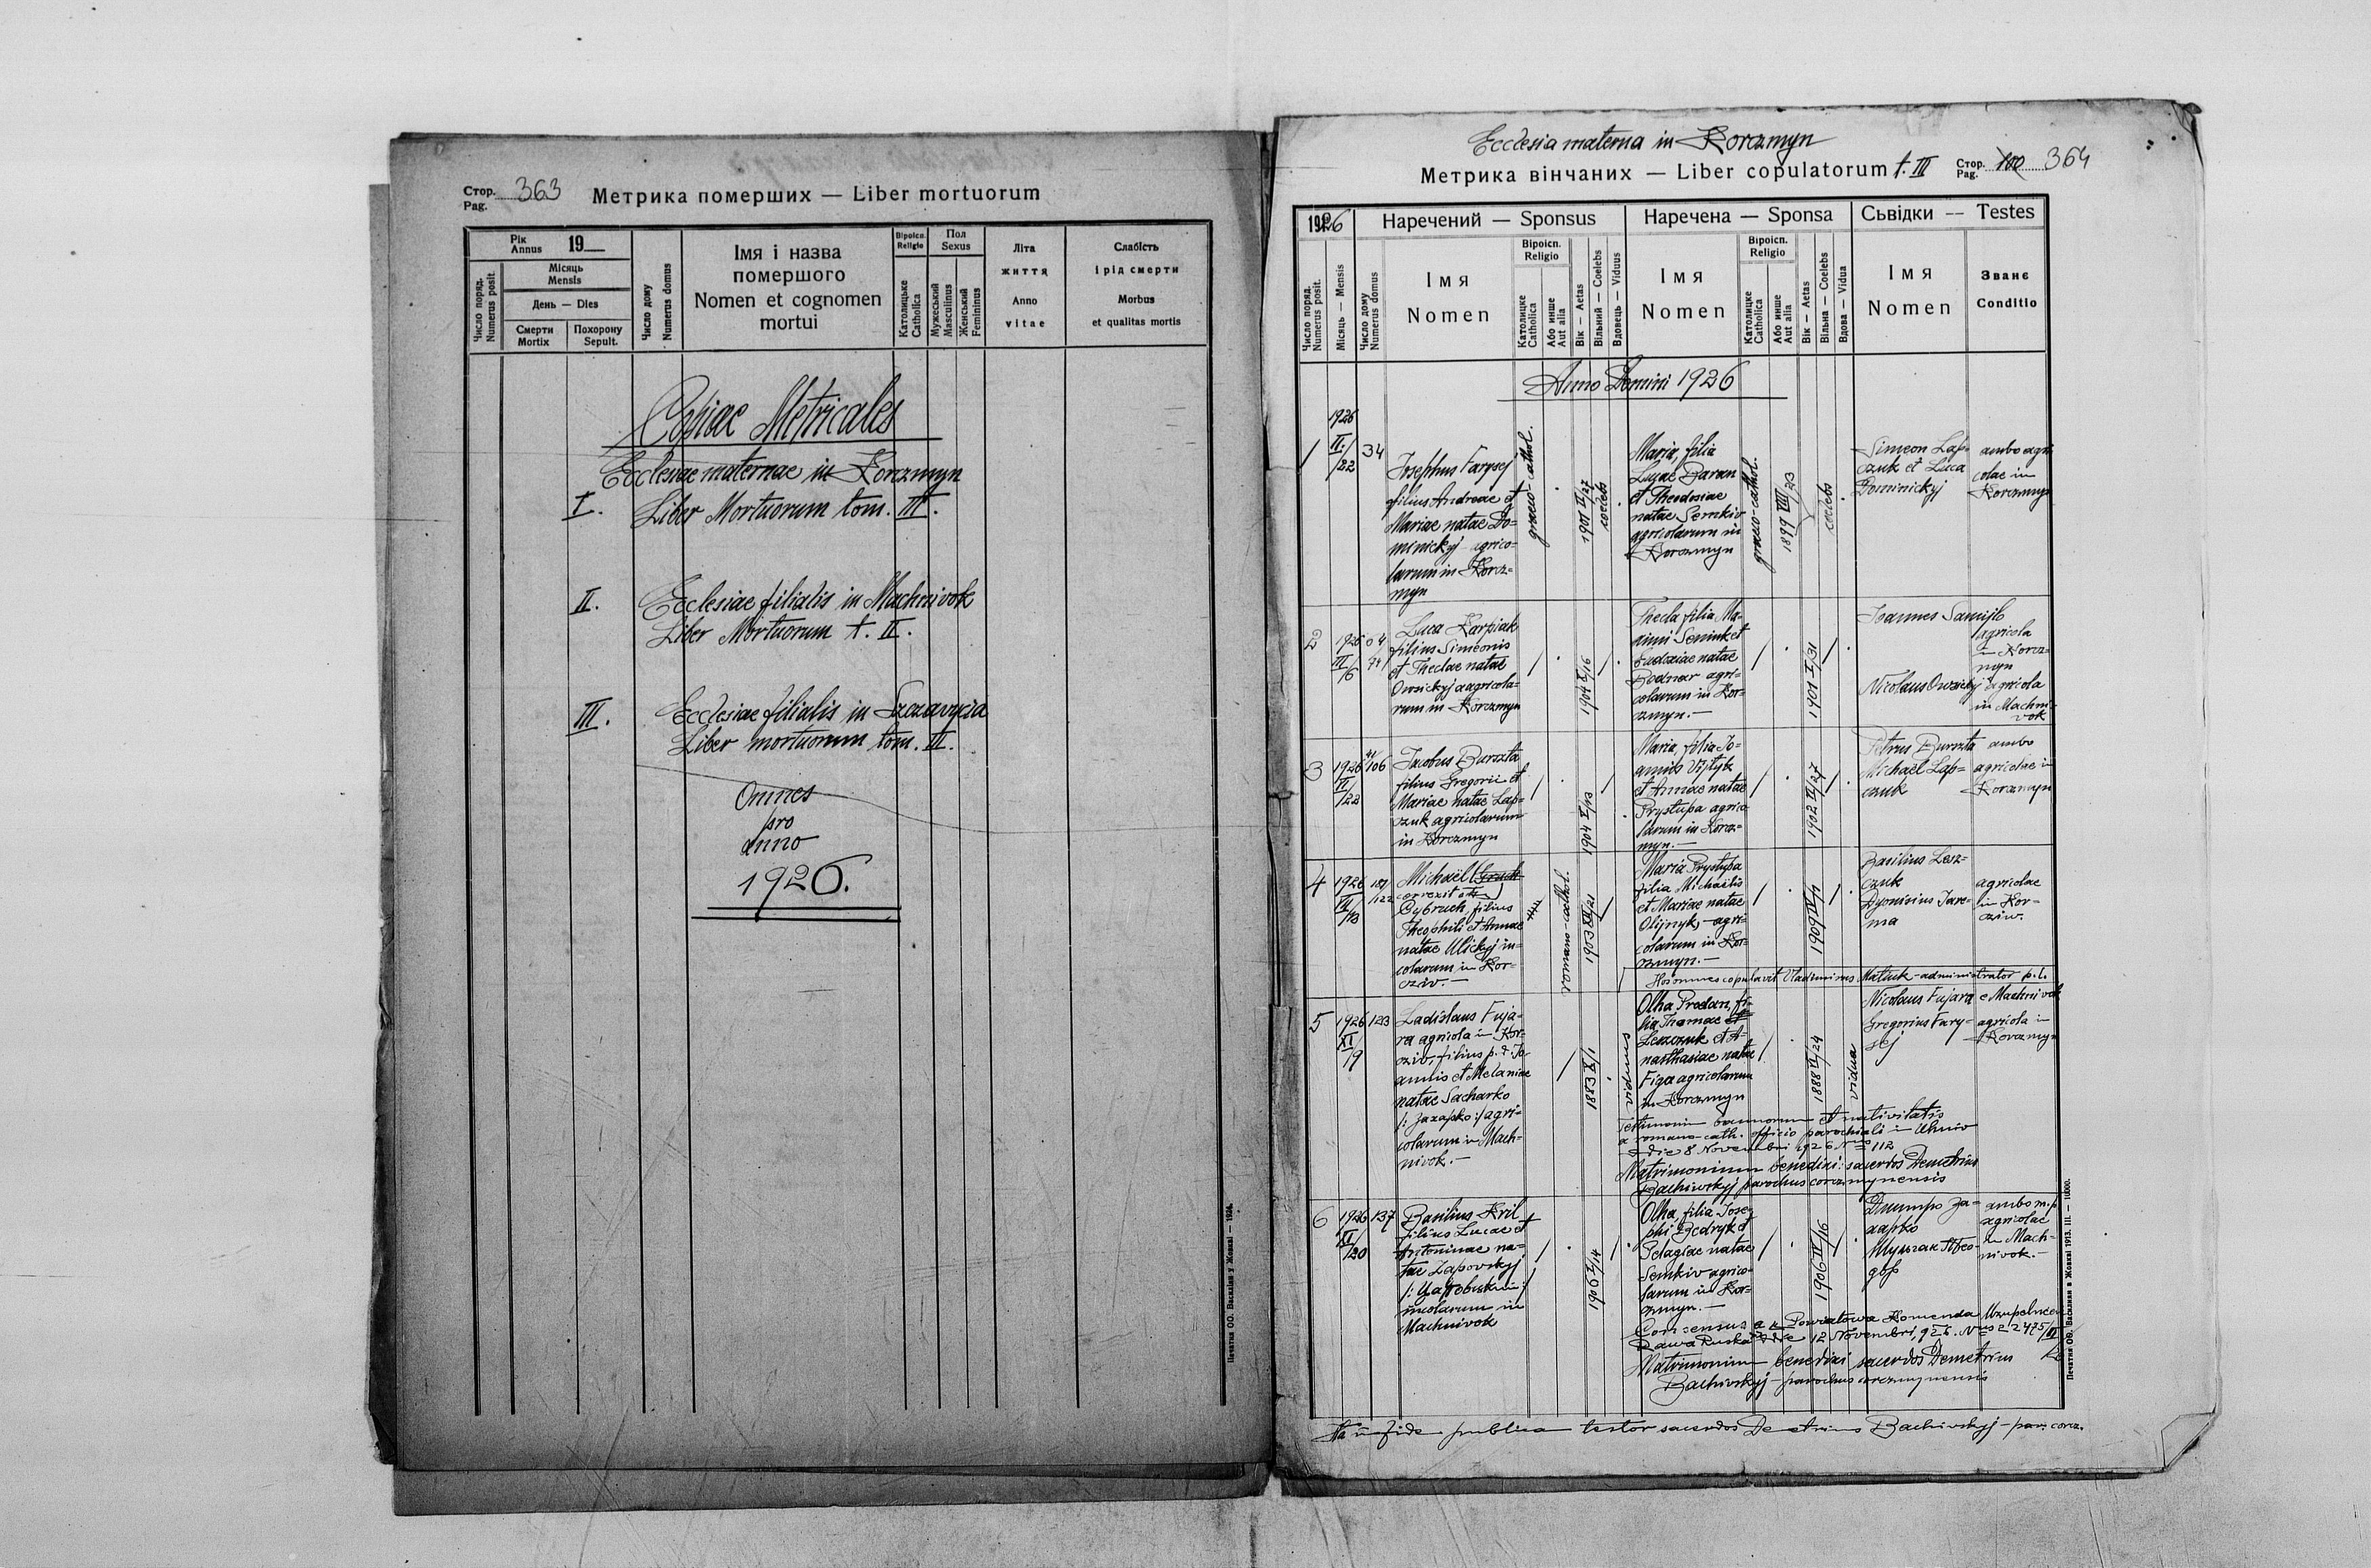 Стор. Pag. 363 Метрика померших — Liber mortuorum
Рік Annus 19
Число поряд. Numerus posit.
Місяць Mensis
День — Dies
Смерти Mortix
Похорону Sepult.
Число дому Numerus domus
Імя і назва
помершого
Nomen et cognomen
mortui
Віроісп. Religio
Католицьке Catholica
Пол Sexus
Мужеський Masculinus
Женський Femininus
Літа
життя
Anno
vitae
Слабість
і рід смерти
Morbus
et qualitas mortis
Copiae Metricales
Ecclesiae maternae in Korczmyn
I. Liber Mortuorum tom. III.
II. Ecclesiae filialis in Machnivok
Liber Mortuorum t. II.
III. Ecclesiae filialis in Szczavycia
Liber mortuorum tom. III.
Omnes
pro
anno
1926.
Печатня ОО. Василіян у Жовкві — 1924.
Ecclesia materna in Korczmyn
Метрика вінчаних — Liber copulatorum t. III Стор. Pag. 100 364
1926 Наречений — Sponsus Наречена — Sponsa Сьвідки — Testes
Число поряд. Numerus posit.
Місяць — Mensis
Число дому Numerus domus
Імя
Nomen
Віроісп. Religio
Католицке Catholica
Або инше Aut alia
Вік — Aetas
Вільний — Coelebs
Вдовець — Viduus
Імя
Nomen
Віроісп. Religio
Католицке Catholica
Або инше Aut alia
Вік — Aetas
Вільна — Coelebs
Вдова — Vidua
Імя
Nomen
Званє
Conditio
Anno Domini 1926
1 1926 II./22 34
Josephus Farysej
filius Andreae et
Mariae natae Do=
minickyj agrico=
larum in Korcz=
myn
graeco-cathol.
1901 II/27
coelebs
Maria, filia
Lucae Baran
et Theodosiae
natae Semkiv
agricolarum in
Korczmyn
graeco-cathol.
1899 VIII/23
coelebs
Simeon Lap=
czuk et Luca
Dominickyj
ambo agri
colae in
Korczmyn
2 1926 III/6 74
Luca Karpiak
filius Simeonis
et Theclae natae
Owsickyj agricola=
rum in Korczmyn
1904 X/16
Thecla filia Ma-
ximi Seniuk et
Eudoxiae natae
Bodnar agri=
colarum in Kor=
czmyn.—
1901 I/31
Joannes Samijlo
agricola
in Korcz=
myn
Nicolaus Owsickyj agricola
in Machni=
vok
3 1926 VI/22 41/106
Jacobus Burszta
filius Gregorii et
Mariae natae Lap=
czuk agricolarum
in Korczmyn
1904 I/13
Maria, filia Jo=
annis Vijtyk
et Annae natae
Prystupa agrico
larum in Korcz=
myn.—
1902 II/27
Petrus Burszta
Michaël Lap=
czuk
ambo
agricolae in
Korczmyn
4 1926
Michaël
correxit
Cybruch, filius
Theophili et Annae
natae Ulickyj in=
colarum in Kor=
cziv.—
romano-cathol.
1903 XII/21
Maria Prystupa
filia Michaëlis
et Mariae natae
Olijnyk, agri=
colarum in Kor=
czmyn.—
Basilius Lesz=
czuk
Dyonisius Jare=
ma
agricolae
in Kor=
cziw.
Hos omnes copulavit Vladimirus Matiuk - administrator p.l.
5 1926 XI/9 123
Ladislaus Fuja=
ra agricola in Kor=
cziv, filius p. d. Jo
annis et Melaniae
natae Sacharko
/: Захарко :/ agri=
colarum in Mach=
nivok.—
1883 X/1
viduus
Olha Prodan, fi=
lia Thomae
Leszczuk et A=
nasthasiae natae
Figa agricolarum
in Korczmyn
1888 VI/24
vidua
Nicolaus Fujara e Machnivok
Gregorius Fary=
sej
agricola in
Korczmyn
Testimonium bannorum et nativitatis
a romano-cath. officio parochiali in Uhniv
d die 8 Novembri 1926 Nrus 112
Matrimonium benedixi: sacerdos Demetrius
Bachivskyj parochus corczmynensis
6 1926 XI/20 137
Basilius Kril
filius Lucae et
Antoninae na=
tae Zapovskyj
incolarum in
Machnivok
1906 I/14
Olha, filia Jose=
phi Bedryk et
Pelagiae natae
Semkiv agrico=
larum in Kor=
czmyn.—
1906 IV/16
Дмитро За=
харко
ambo m. p.
agricolae
in Mach=
nivok.—
Consensus a Powiatowa Komenda Uzupełnień
Rawa Ruska d die 12 Novembri 1926. Nrus 22475/II
Matrimonium benedixi sacerdos Demetrius
Bachivskyj - parochus corczmynensis
Печатня ОО. Василиан в Жовкві 1913. III. — 10000.
Ita in fide publica testor sacerdos Demetrius Bachivskyj — par. corcz.